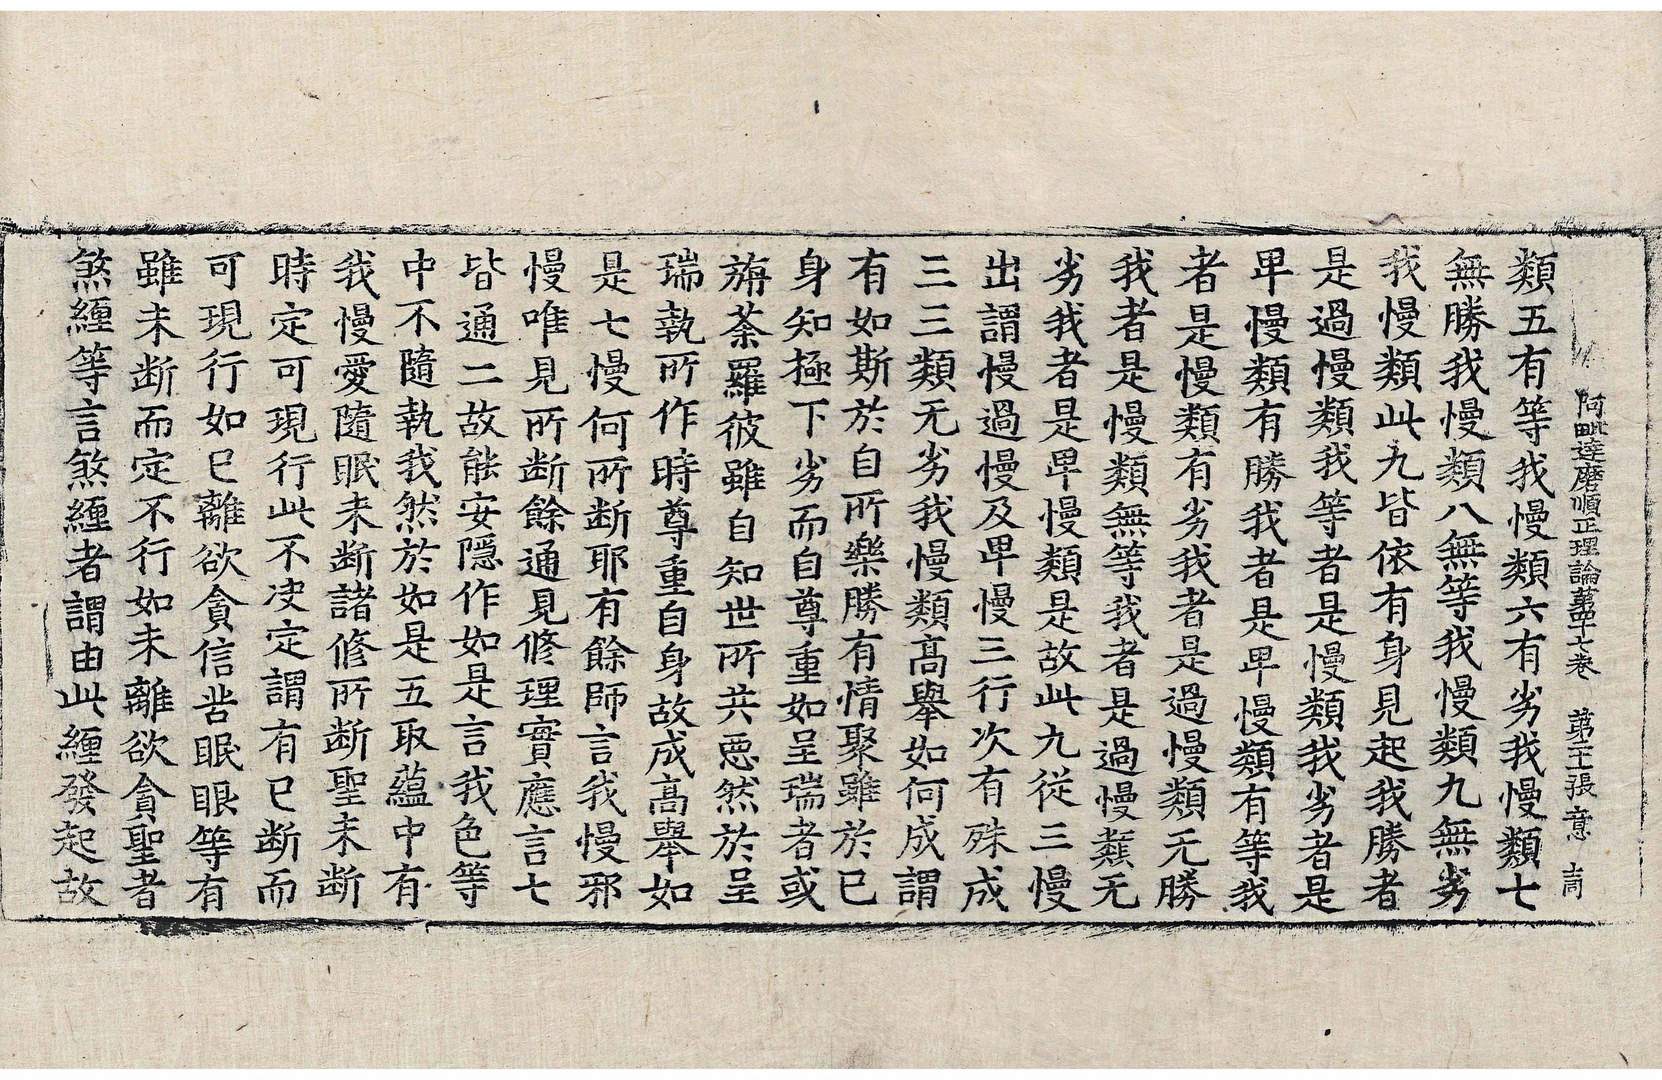 阿毗達磨順正理論第四十七卷 第二十張 意
類五有等我慢類六有劣我慢類七
無勝我慢類八無等我慢類九無劣
我慢類此九皆依有身見起我勝者
是過慢類我等者是慢類我劣者是
卑慢類有勝我者是卑慢類有等我
者是慢類有劣我者是過慢類无勝
我者是慢類無等我者是過慢類无
劣我者是卑慢類是故此九從三慢
出謂慢過慢及卑慢三行次有殊成
三三類无劣我慢類高舉如何成謂
有如斯於自所樂勝有情聚雖於已
身知極下劣而自尊重如呈瑞者或
旃荼羅彼雖自知世所共惡然於呈
瑞執所作時尊重自身故成高舉如
是七慢何所断耶有餘師言我慢邪
慢唯見所断餘通見修理實應言七
皆通二故能安隱作如是言我色等
中不隨執我然於如是五取蘊中有
我慢愛隨眠未断諸修所断聖未断
時定可現行此不决定謂有已断而
可現行如已離欲貪信苦眠眼等有
雖未断而定不行如未離欲貪聖者
煞纏等言煞纏者謂由此纏發起故